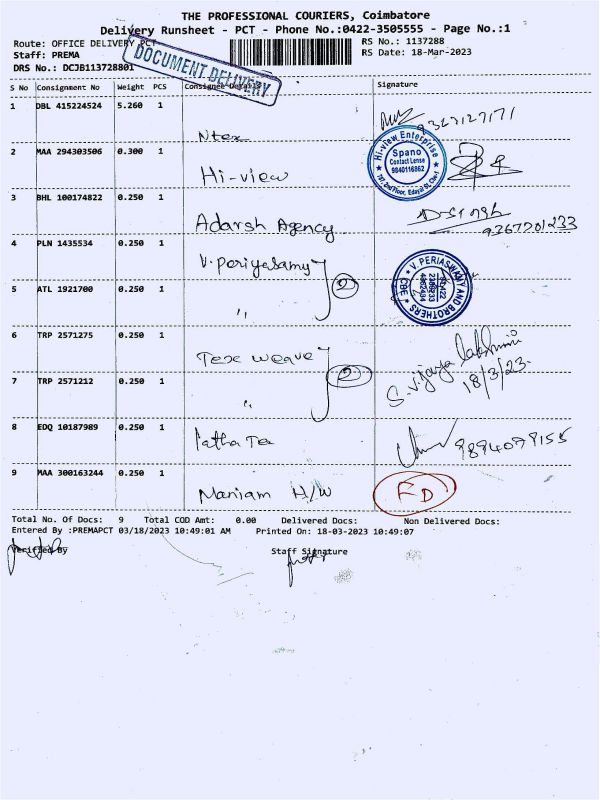 THE PROFESSIONAL COURIERS, Coimbatore
Delivery Runsheet - PCT - Phone No.:0422-3505555 - Page No.:1
Route: OFFICE DELIVERY PCT
RS No.: 1137288
Staff: PREMA
RS Date: 18-Mar-2023
DRS No.: DCJB113728801
DOCUMENT DELIVERY
S No Consignment No Weight PCS Consignee Details Signature
1 DBL 415224524 5.260 1
Ntex
2 MAA 294303506 0.300 1
Hi-view
Hi-view Enterprise
Spano
Contact Lense
9840116862
3 BHL 100174822 0.250 1
Adarsh Agency
9367201233
4 PLN 1435534 0.250 1
V. Periyasamy
2
V. PERIASWAMY AND BROTHERS
CBE
5 ATL 1921700 0.250 1
"
6 TRP 2571275 0.250 1
Tex weave
2
S. Vijaya lakshmi
18/3/23.
7 TRP 2571212 0.250 1
"
8 EDQ 10187989 0.250 1
Latha Tex
9894079155
9 MAA 300163244 0.250 1
Maniam H/W
FD
Total No. Of Docs: 9 Total COD Amt: 0.00 Delivered Docs: Non Delivered Docs:
Entered By :PREMAPCT 03/18/2023 10:49:01 AM Printed On: 18-03-2023 10:49:07
Verified By Staff Signature